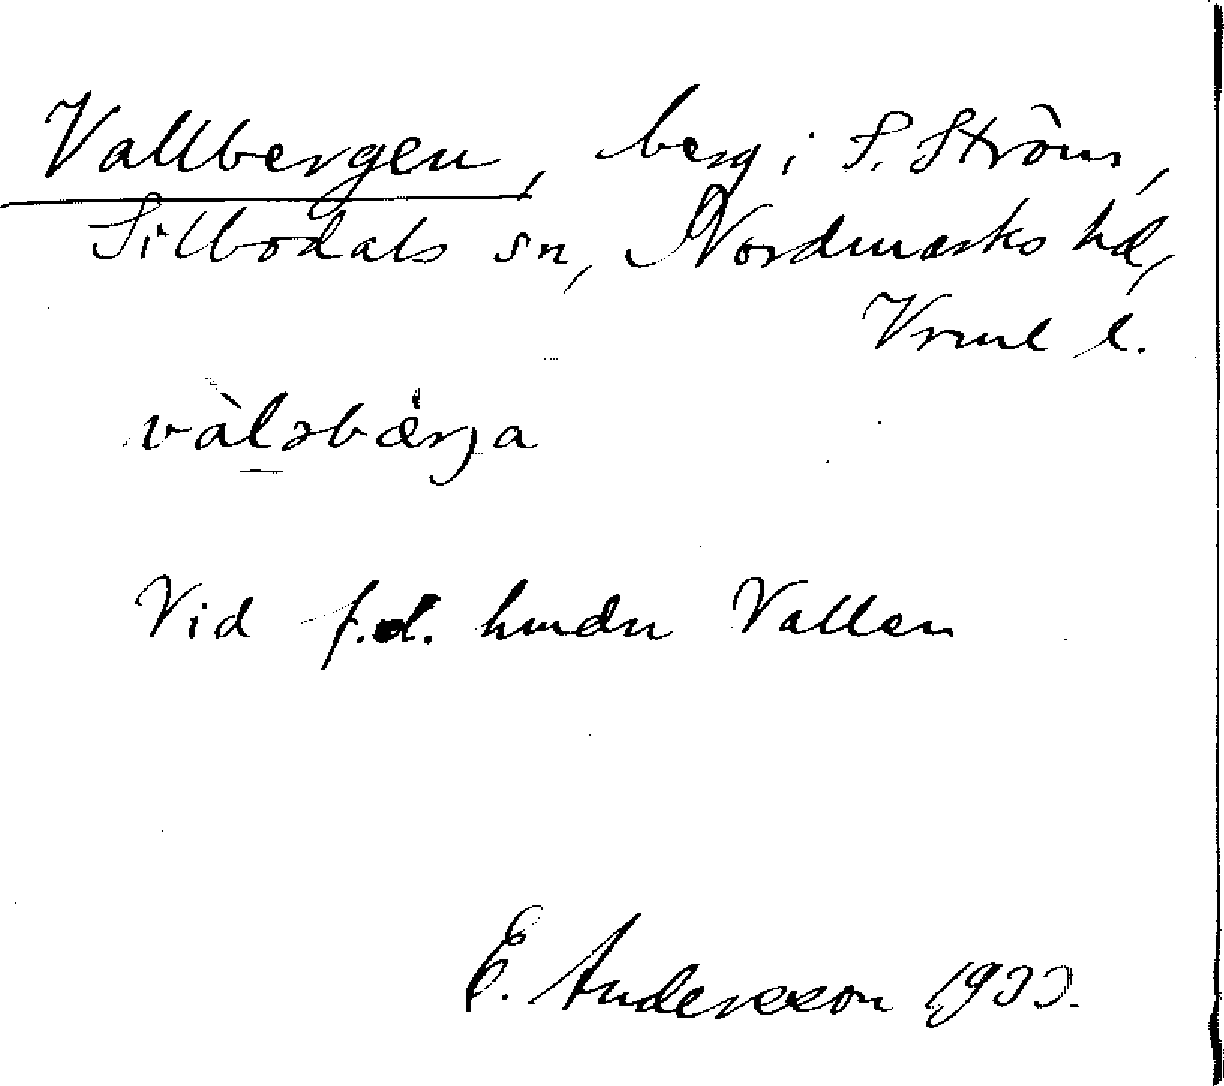 Vallbergen, berg i S. Ström,
Silbodals sn, Nordmarks hd,
Vrml l.
vàlsbærja
Vid f.d. hmdn Vallen
E. Andersson 1933.